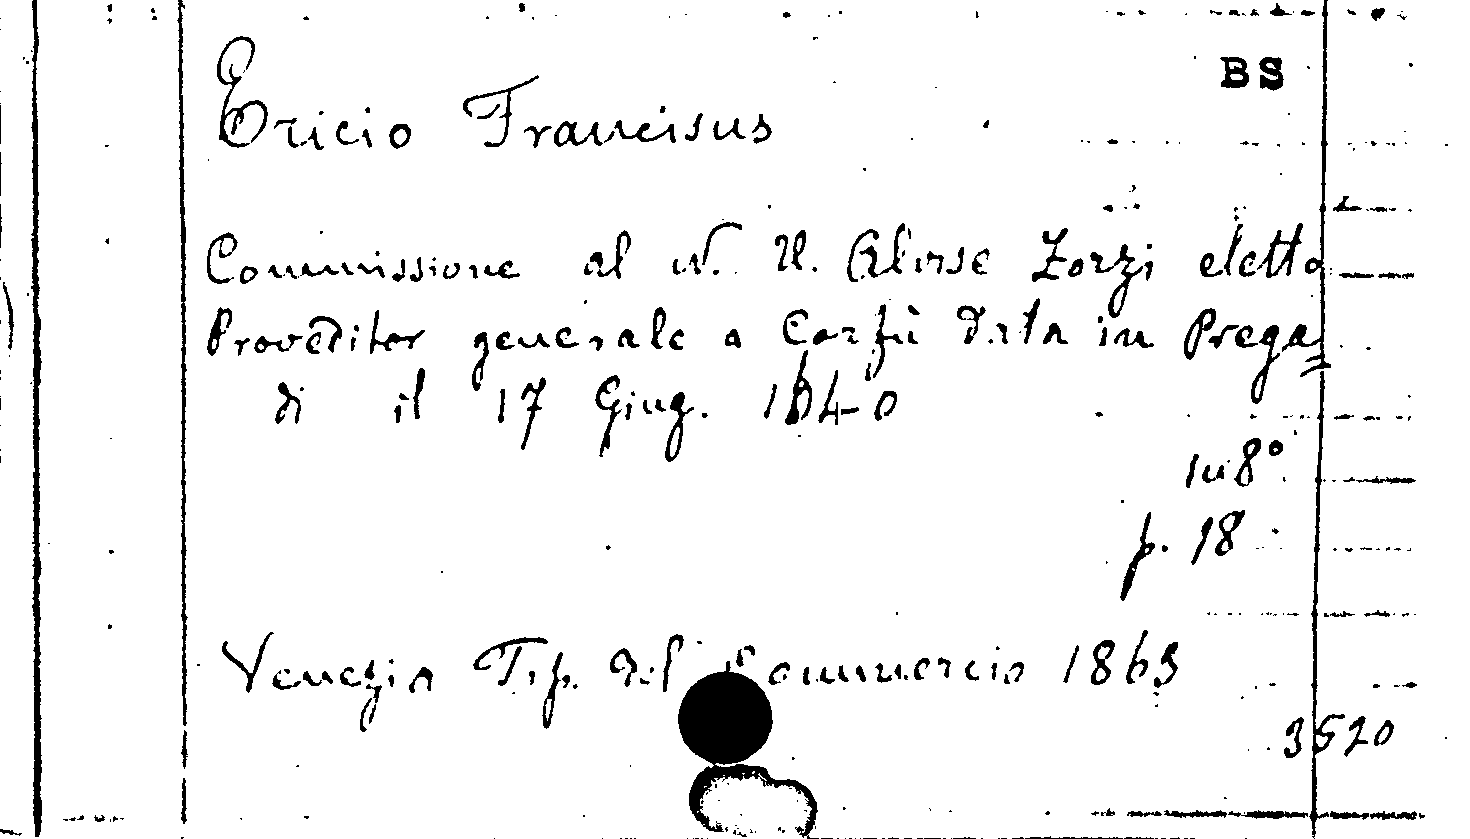 BS
Ericio Francisus
Commissione al N. U. Alvise Zorzi eletto
Proveditor generale a Corfù data in Prega=
di il 17 Giug. 1640
in 8°
p. 18
Venezia Tip. del Commercio 1863
3520